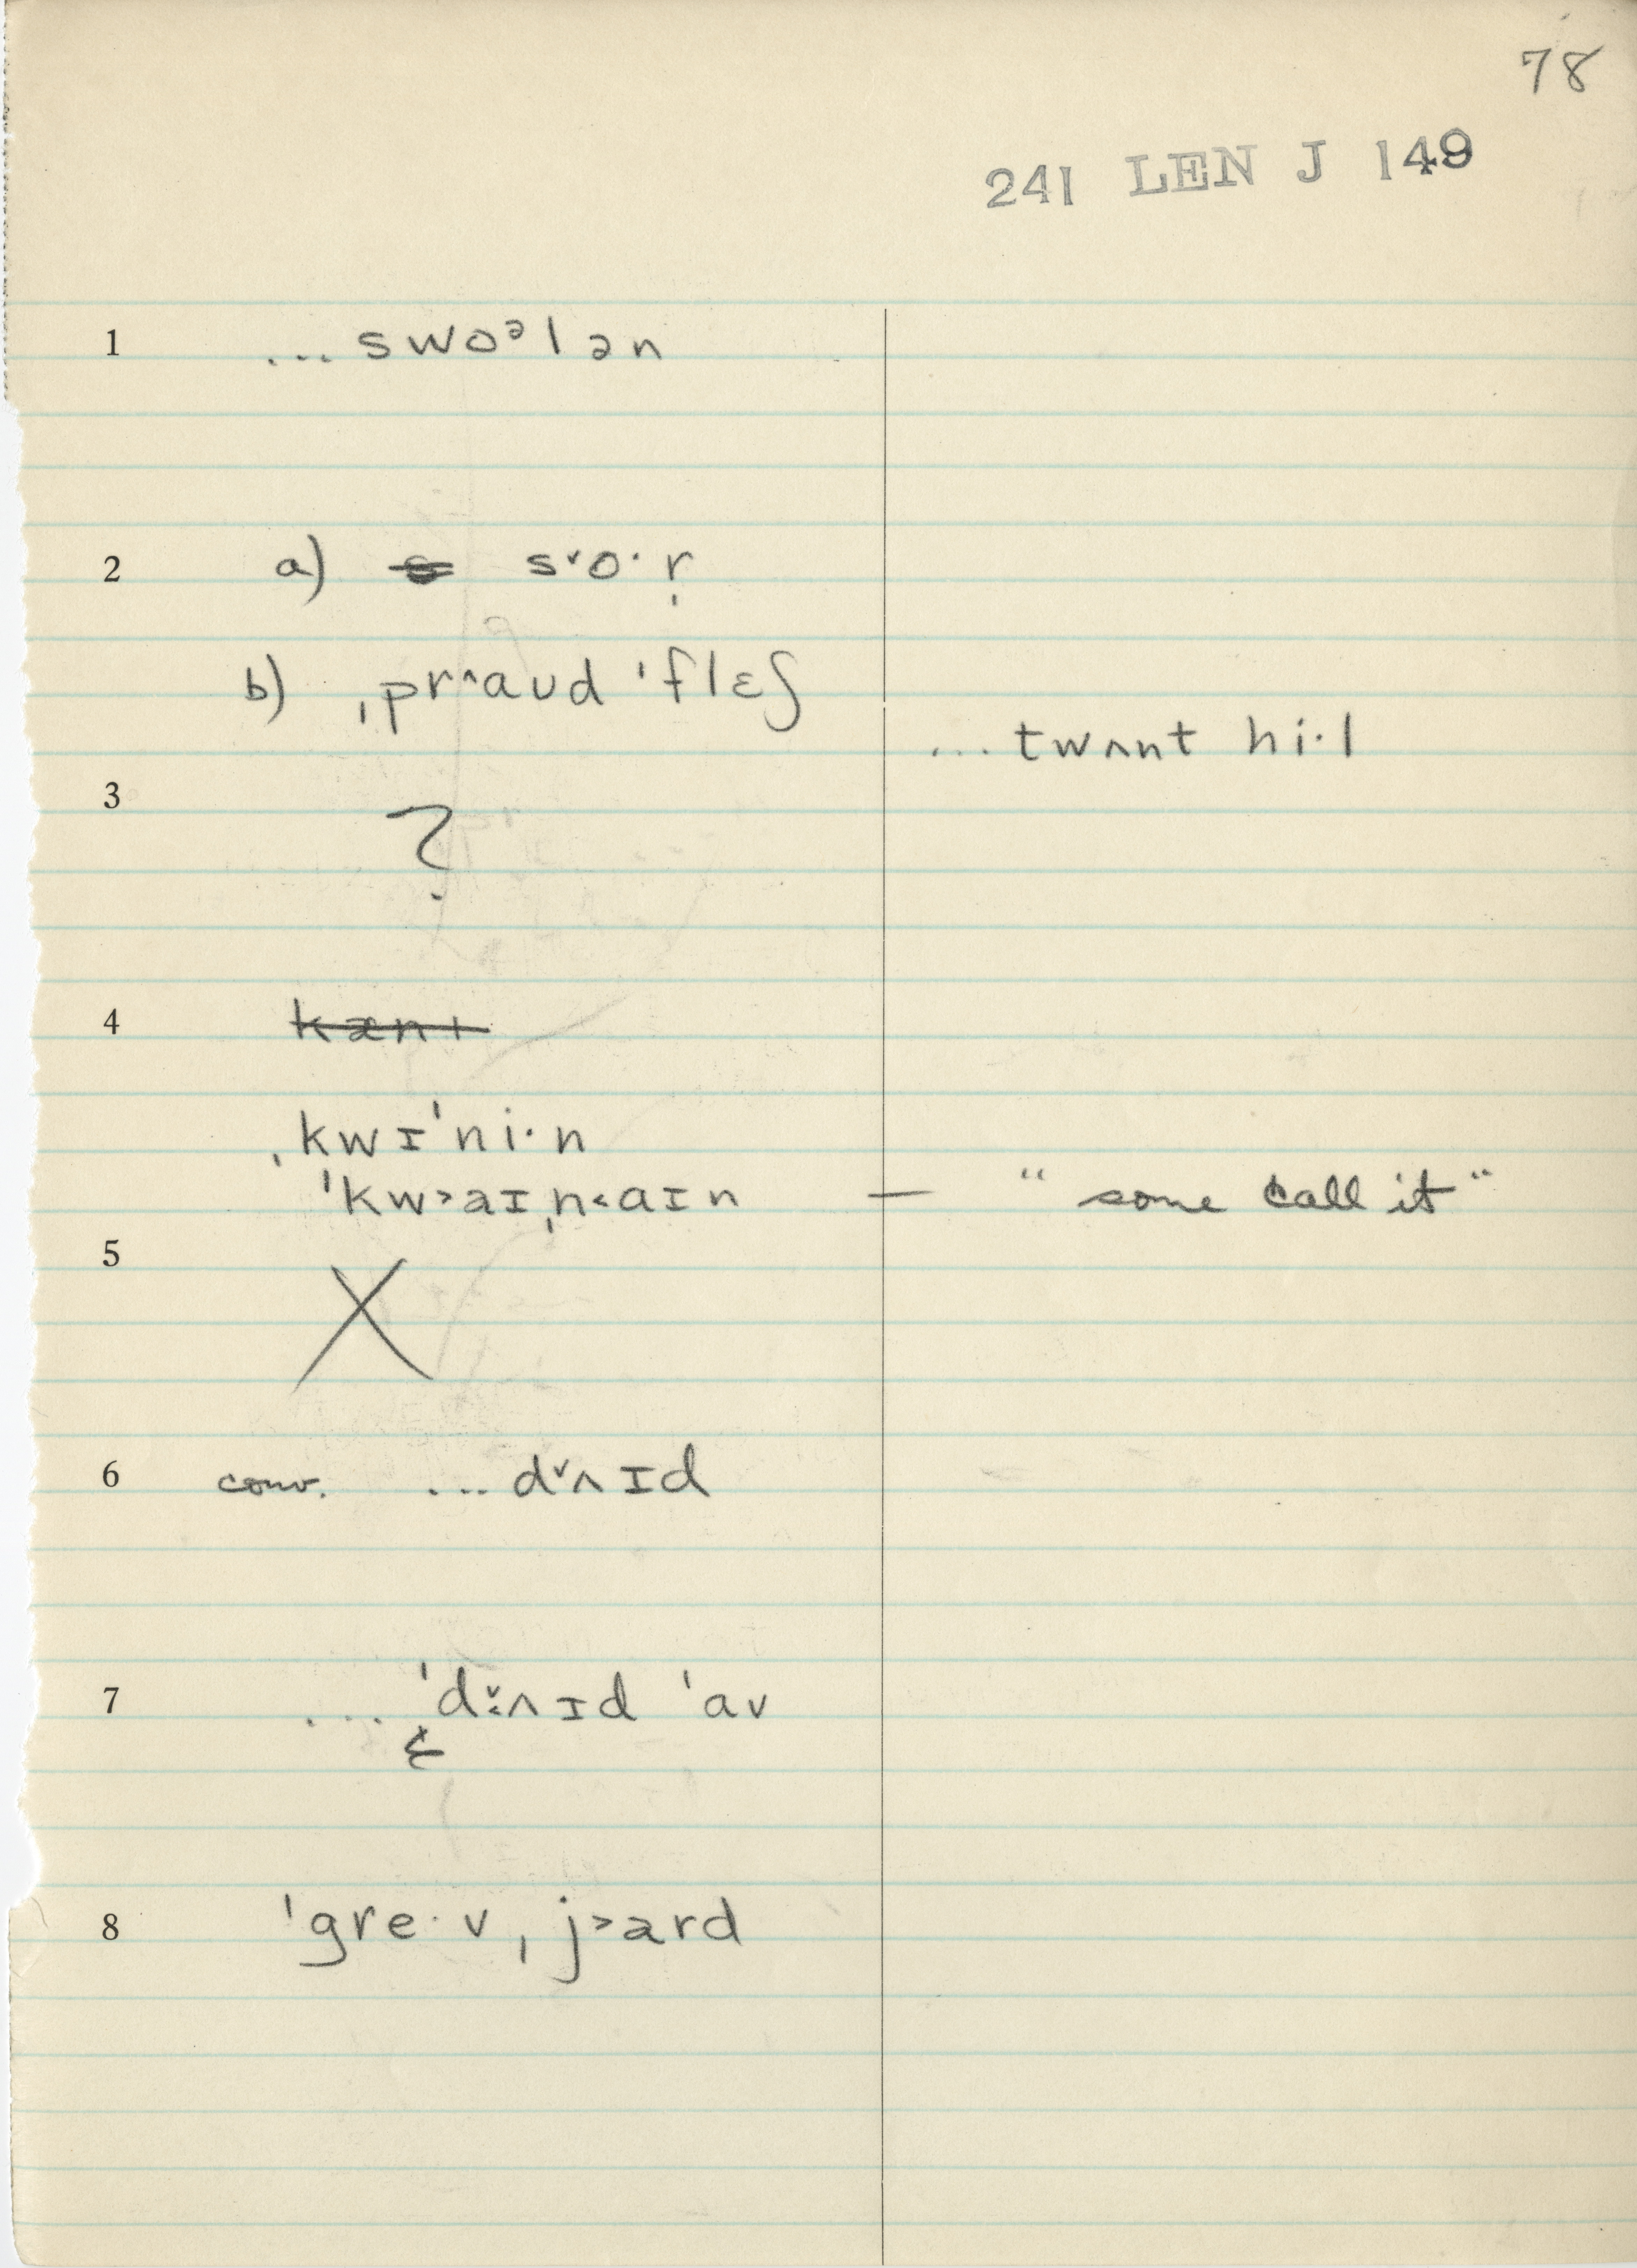 78
241 LEN J 149
1 ... swoᵊlən
2 a) s˅o·r̩
b) ˌpr˄aʊd ˈflɛʃ
... twʌnt hi·l
3 ?
4 kæn
ˌkwɪˈni·n
ˈkw˃aɪˌn˂aɪn — "some call it"
5 X
6 conv. ... d˅ʌɪd
7 ... ˈd˅˂ʌɪd ˈav
8 ˈgre·vˌj˃ard